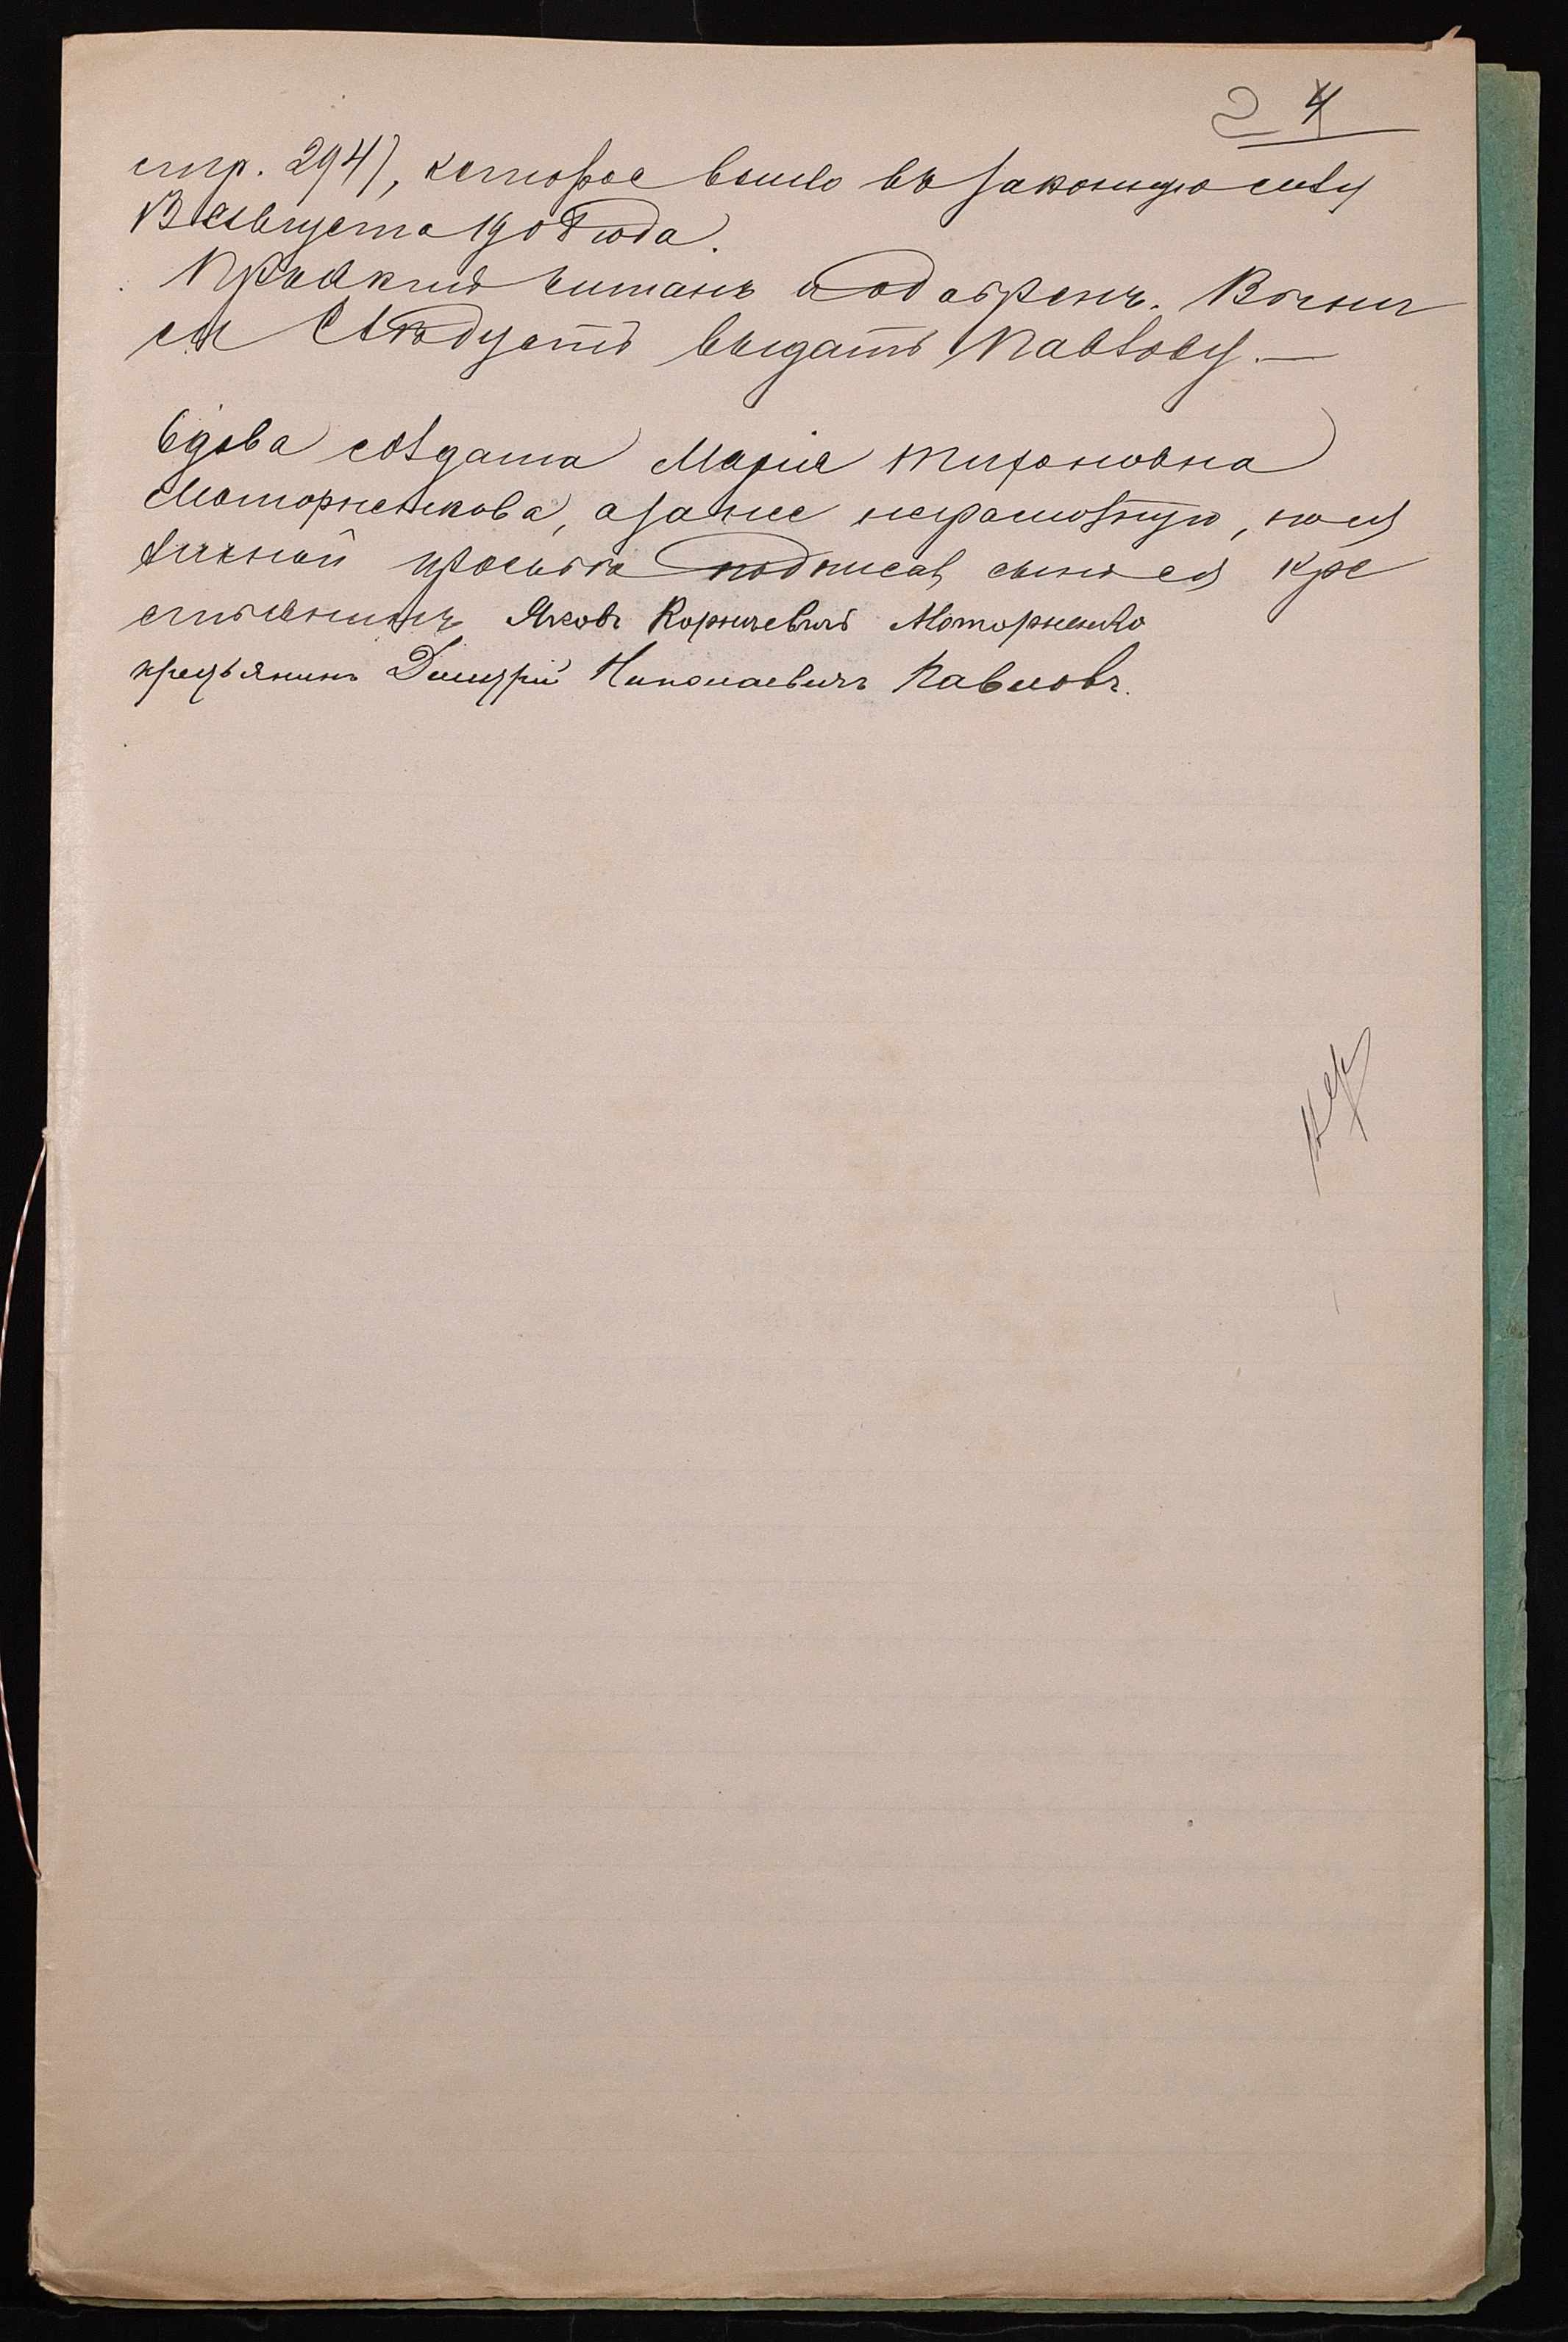 2 4
стр. 294), которое вошло въ законную силу
13 Августа 1908 года.
Проэктъ читанъ и одобренъ. Выпи
сь Слѣдуетъ выдать Павлову.—
Вдова солдата Марія Тихоновна
Моторненкова, а за нее неграмотную, по ея
личной просьбѣ подписалъ сынъ ея кре
стьянинъ Яковъ Корнѣевичъ Моторненко
крестьянинъ Дмитрій Николаевичъ Павловъ.